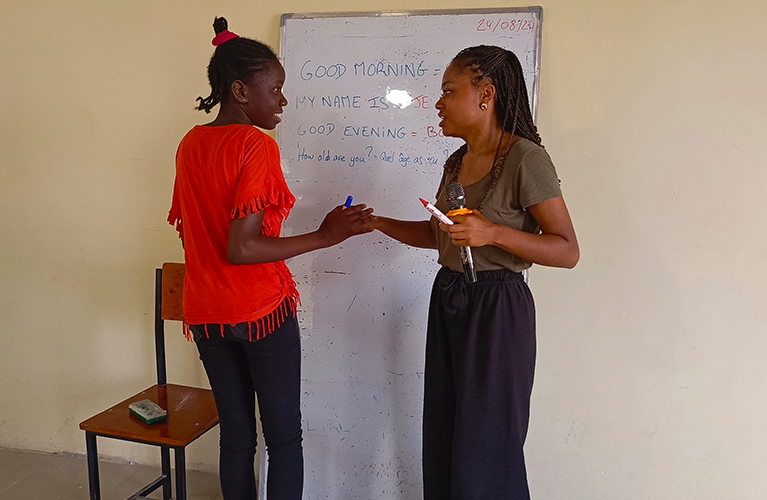 29/08/23
GOOD MORNING =
MY NAME IS = JE
GOOD EVENING = BO
How old are you? = Quel âge as tu ?